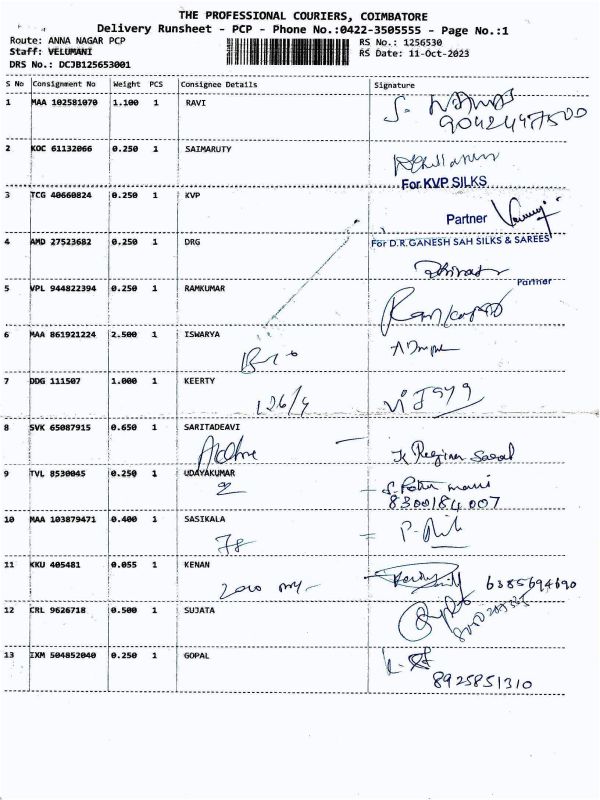 THE PROFESSIONAL COURIERS, COIMBATORE
Delivery Runsheet - PCP - Phone No.:0422-3505555 - Page No.:1
Route: ANNA NAGAR PCP
Staff: VELUMANI
DRS No.: DCJB125653001
RS No.: 1256530
RS Date: 11-Oct-2023
S No Consignment No Weight PCS Consignee Details Signature
1 MAA 102581070 1.100 1 RAVI
2 KOC 61132066 0.250 1 SAIMARUTY
For KVP SILKS
3 TCG 40660824 0.250 1 KVP
Partner
4 AMD 27523682 0.250 1 DRG For D.R.GANESH SAH SILKS & SAREES
Partner
5 VPL 944822394 0.250 1 RAMKUMAR
6 MAA 861921224 2.500 1 ISWARYA
7 DDG 111507 1.000 1 KEERTY
126/4
8 SVK 65087915 0.650 1 SARITADEAVI
9 TVL 8530045 0.250 1 UDAYAKUMAR
2 8300184007
10 MAA 103879471 0.400 1 SASIKALA
78
11 KKU 405481 0.055 1 KENAN
6385694690
12 CRL 9626718 0.500 1 SUJATA
13 IXM 504852040 0.250 1 GOPAL
8925851310